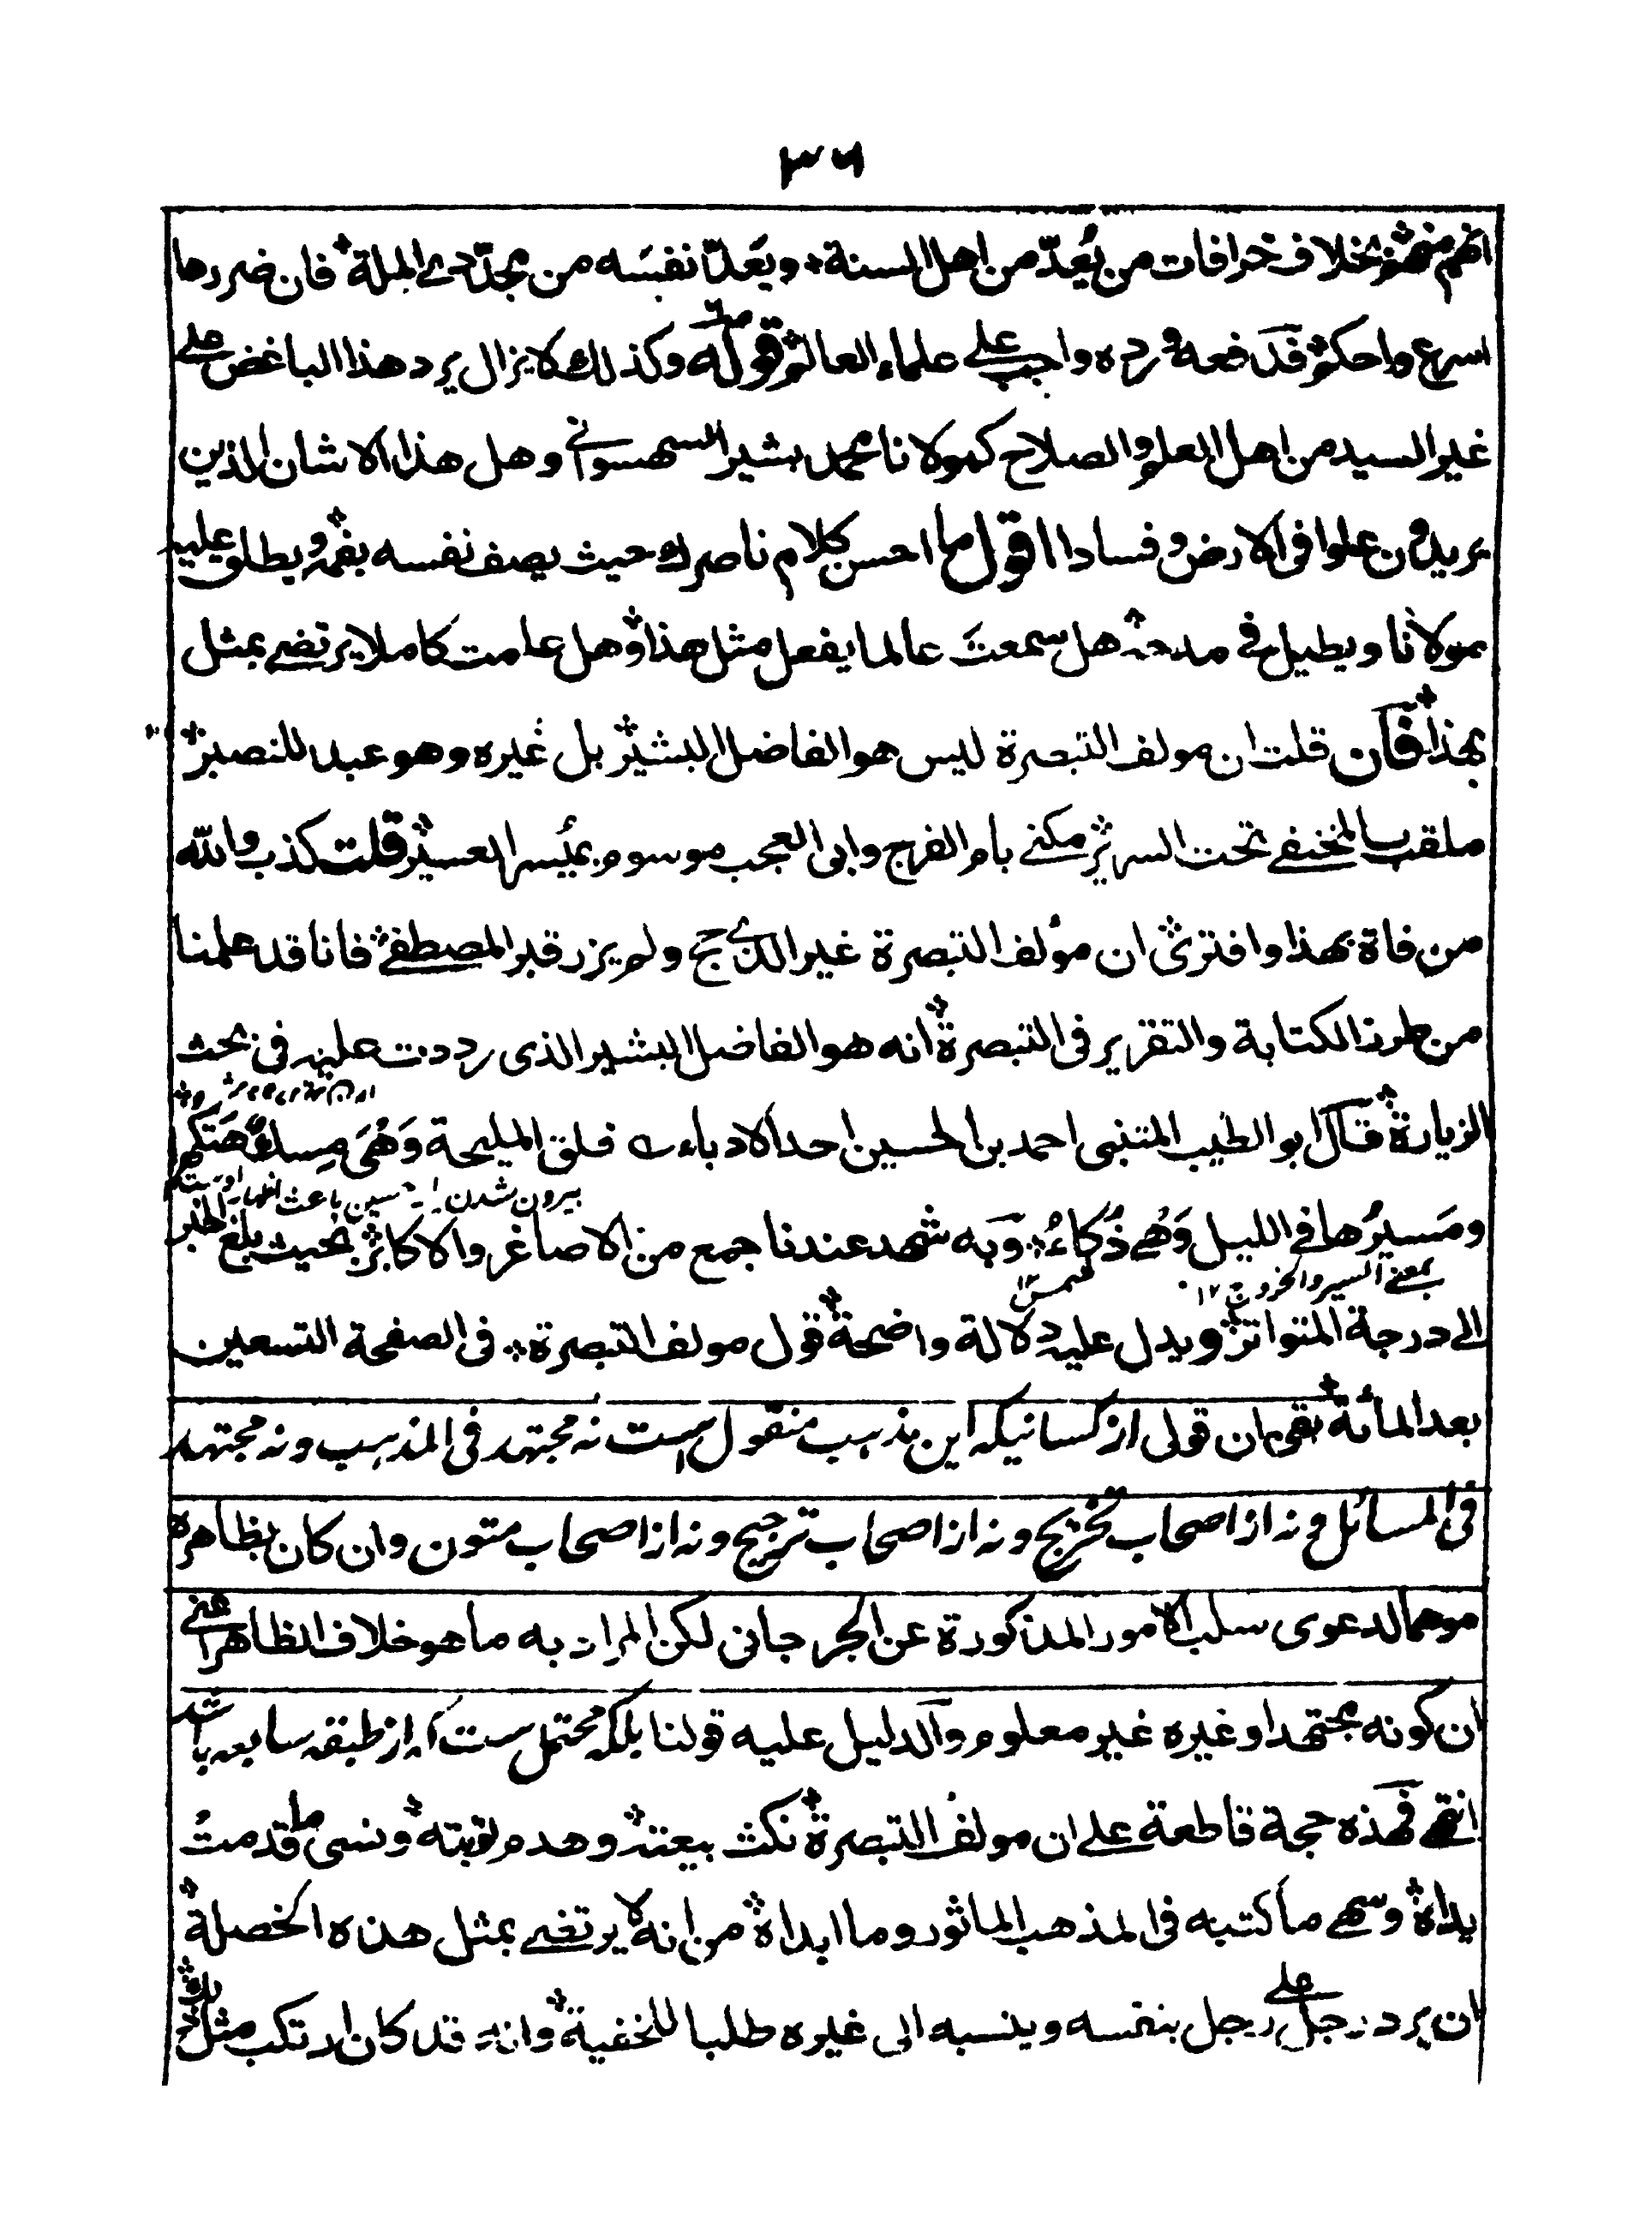 ٣٦
انهم منهم بخلاف خرافات من يُعدّ من اهل السنة ويَعدّ نفسَه من مجدّدي الملة فان ضررها
اسرع واحكم فدفعه ورده واجب على علماء العالم قوله وكذلك لا يزال يرد هذا الباغض على
غير السيد من اهل العلم والصلاح كمولانا محمد بشير السهسواني وهل هذا الا شان الذين
يريدون علوا فى الارض وفسادا اقول ما احسن كلام ناصرك حيث يصف نفسه بفمه ويطلق عليه
مولانا ويطيل في مدحه هل سمعتَ عالما يفعل مثل هذا وهل علمت كاملا يرتضي بمثل
بهذا فان قلت ان مولف التبصرة ليس هو الفاضل البشير بل غيره وهو عبد النصير
ملقب بالمختفي تحت السرير مكنى بام الفرج وابى العجب موسوم بميسر العسير قلت كذب والله
من فاة بهذا وافترى ان مؤلف التبصرة غير الذي حج ولم يزر قبر المصطفى فانا قد علمنا
من طرز الكتابة والتقرير فى التبصرة انه هو الفاضل البشير الذى رددت عليه فى بحث
الزيارة قال ابو الطيب المتنبى احمد بن الحسين احد الادباء قلق المليحة وَهْىَ مِسك هَتكها
بيرون شدن
ومَسيرُها في الليل وَهْي ذُكاءُ وبه شهد عندنا جمع من الاصاغر والاكابر بحيث بلغ الخبر
بمعنى السير والخروج ١٢ شمس ١٢
الى درجة المتواتر ويدل عليه دلالة واضحة قول مولف التبصرة فى الصفحة التسعين
بعد المائة بقى ان قولى از كسانيكه اين مذهب منقول است نه مجتهد فى المذهب ونه مجتهد
فى المسائل ونه از اصحاب تخريج ونه از اصحاب ترجيح ونه از اصحاب متون وان كان بظاهره
موهما لدعوى سلب الامور المذكورة عن الجرجانى لكن المراد به ما هو خلاف الظاهر اعنى
ان كونه مجتهدا وغيره غير معلوم والدليل عليه قولنا بلكه محتمل ست كه از طبقه سابعه باشد
انتهى فهذه حجة قاطعة على ان مولف التبصرة نكث بيعته وهدم توبته ونسى ما قدمتْ
يداه وسهى ما كتبه فى المذهب الماثور وما ابداه من انه لا يرتضي بمثل هذه الخصلة
ان يرد رجل على رجل بنفسه وينسبه الى غيره طلبا للخفية وانه قد كان ارتكب مثل ذلك